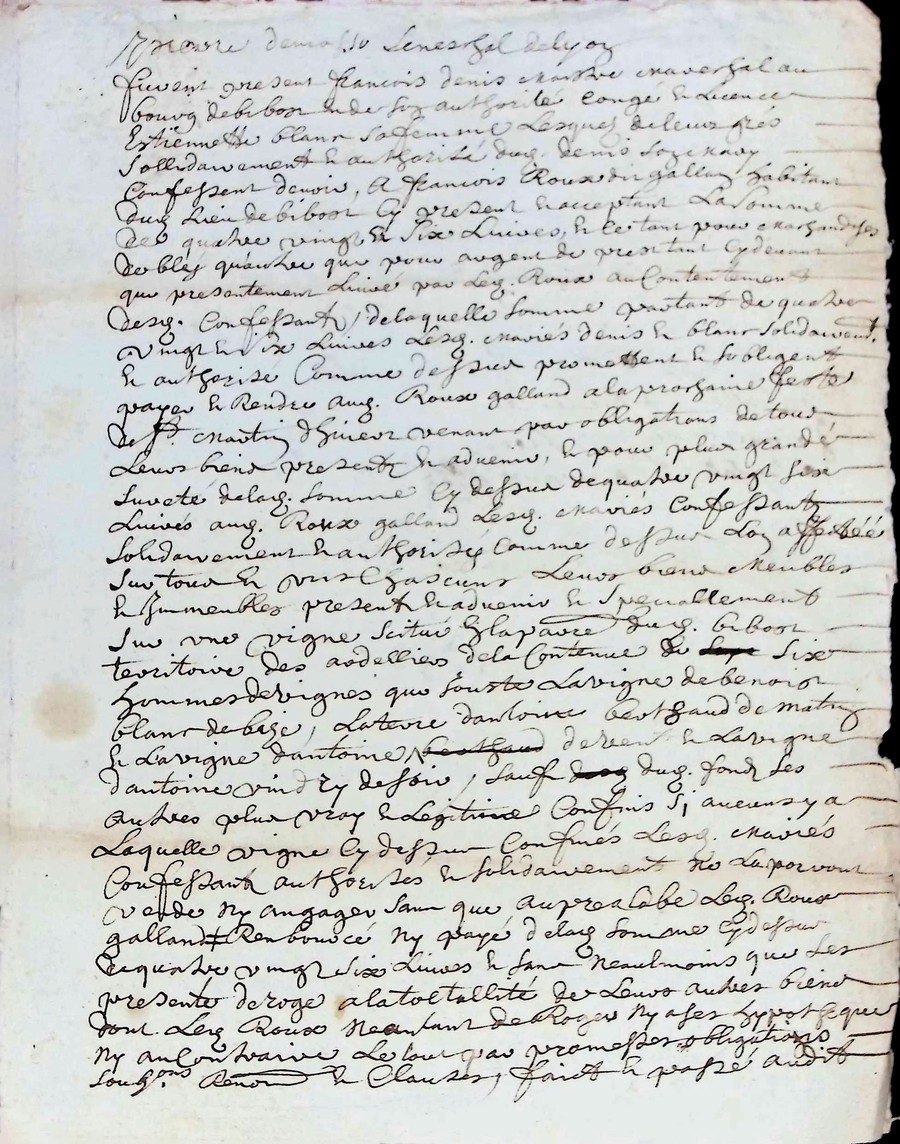 senerchal de lyon
furent present francois denis maistre marerchal au
bourg de bibost et de son authorité congé et licence
Estiennette blanc sa femme Lesquels de leurs grés
sollidairement et authorisé dud. denis son mary
Confessent devoir, A francois Roux dit galland habitant
dud lieu de bibost Cy present et acceptant La somme
de quatre vingt et six Livres, et ce tant pour marchandises
de bled quautre que pour argent de prest tant Cydevant
que presentement Livré par Led. Roux au Contentement
desd. Confessants, de laquelle somme partant de quatre
vingt et six Livres Lesd. mariés denis et blanc solidairement
et authorisé Comme dessus promettent et sobligent
payer et Rendre aud. Roux galland a la prochaine feste
de St. Martin dhiver venant par obligations de tous
Leurs biens presents et advenir, et pour plus grande
sureté de lad. somme Cy dessus de quatre vingt six
Livres aud. Roux galland Lesd. mariés Confessants
solidairement et authorisés Comme dessus Lon affectéé
sur tous et uns Chascuns Leurs biens Meubles
et Immeubles present et advenir et speciallement
sur une vigne scitué En la parre dud. bibost
territoire des ardelliers de la Contenue de six
hommes de vignes que jouste La vigne de benoist
blanc de bize, La terre dantoine berthaud de matin
et La vigne dantoine berthaud de vent et La vigne
dantoine vindry de soir, sauf dud. fond ses
autres plus vray et Legitime Confins si aucuns y a
Laquelle vigne Cy dessus Confinés Lesd. mariés
Confessants authorisés et solidairement Ne La pourront
vendre Ny angager sans que au prealabe Led. Roux
galland Renbource Ny payé de lad somme Cy dessus
de quatre vingt six Livres et sans Neaulmoins que Les
presente deroge a la tottallité de Leurs autres biens
dont Led Roux Neantant deRoger Ny a ses hypotheque
Ny au Contraire Le tout par promesses obligations
soubons Renon et Clauses, faict et passé audit